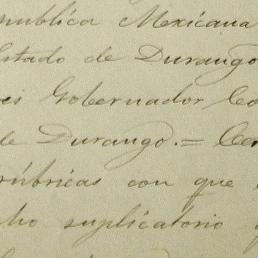 epublica Mexicana
Estado de Durango
Gobernador Co
de Durango.= Cer
rúbricas con que
ho suplicatorio q